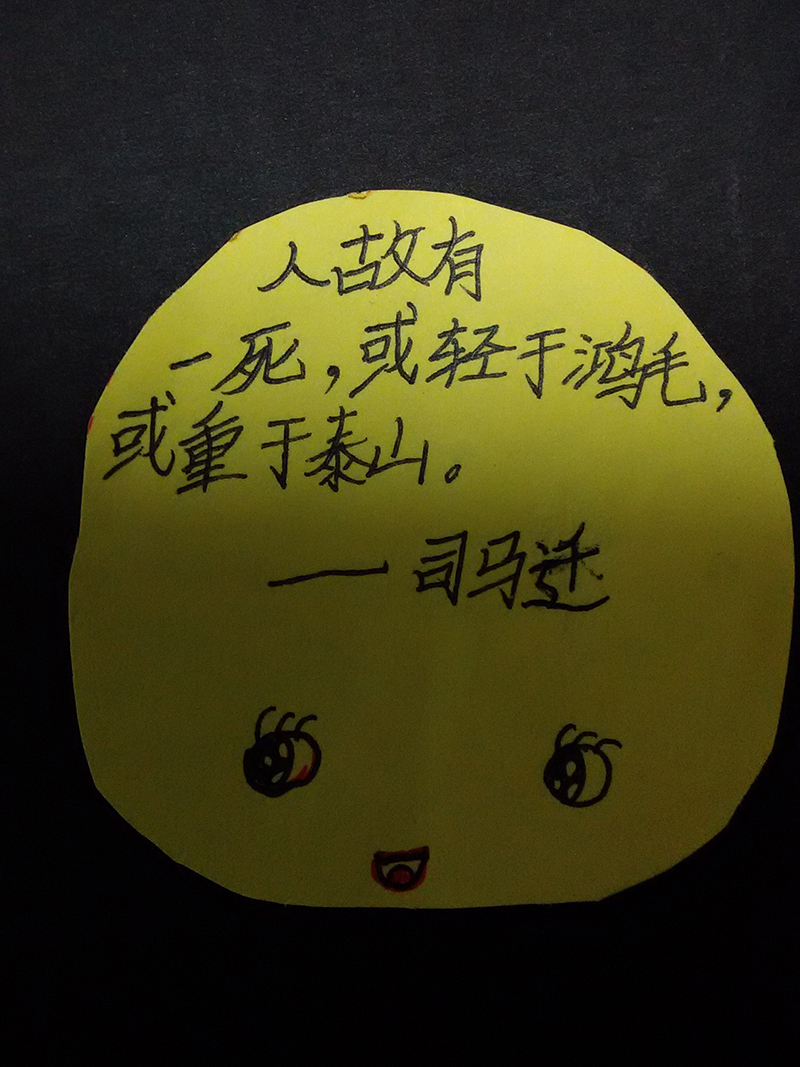 人故有
一死，或轻于鸿毛，
或重于泰山。
——司马迁